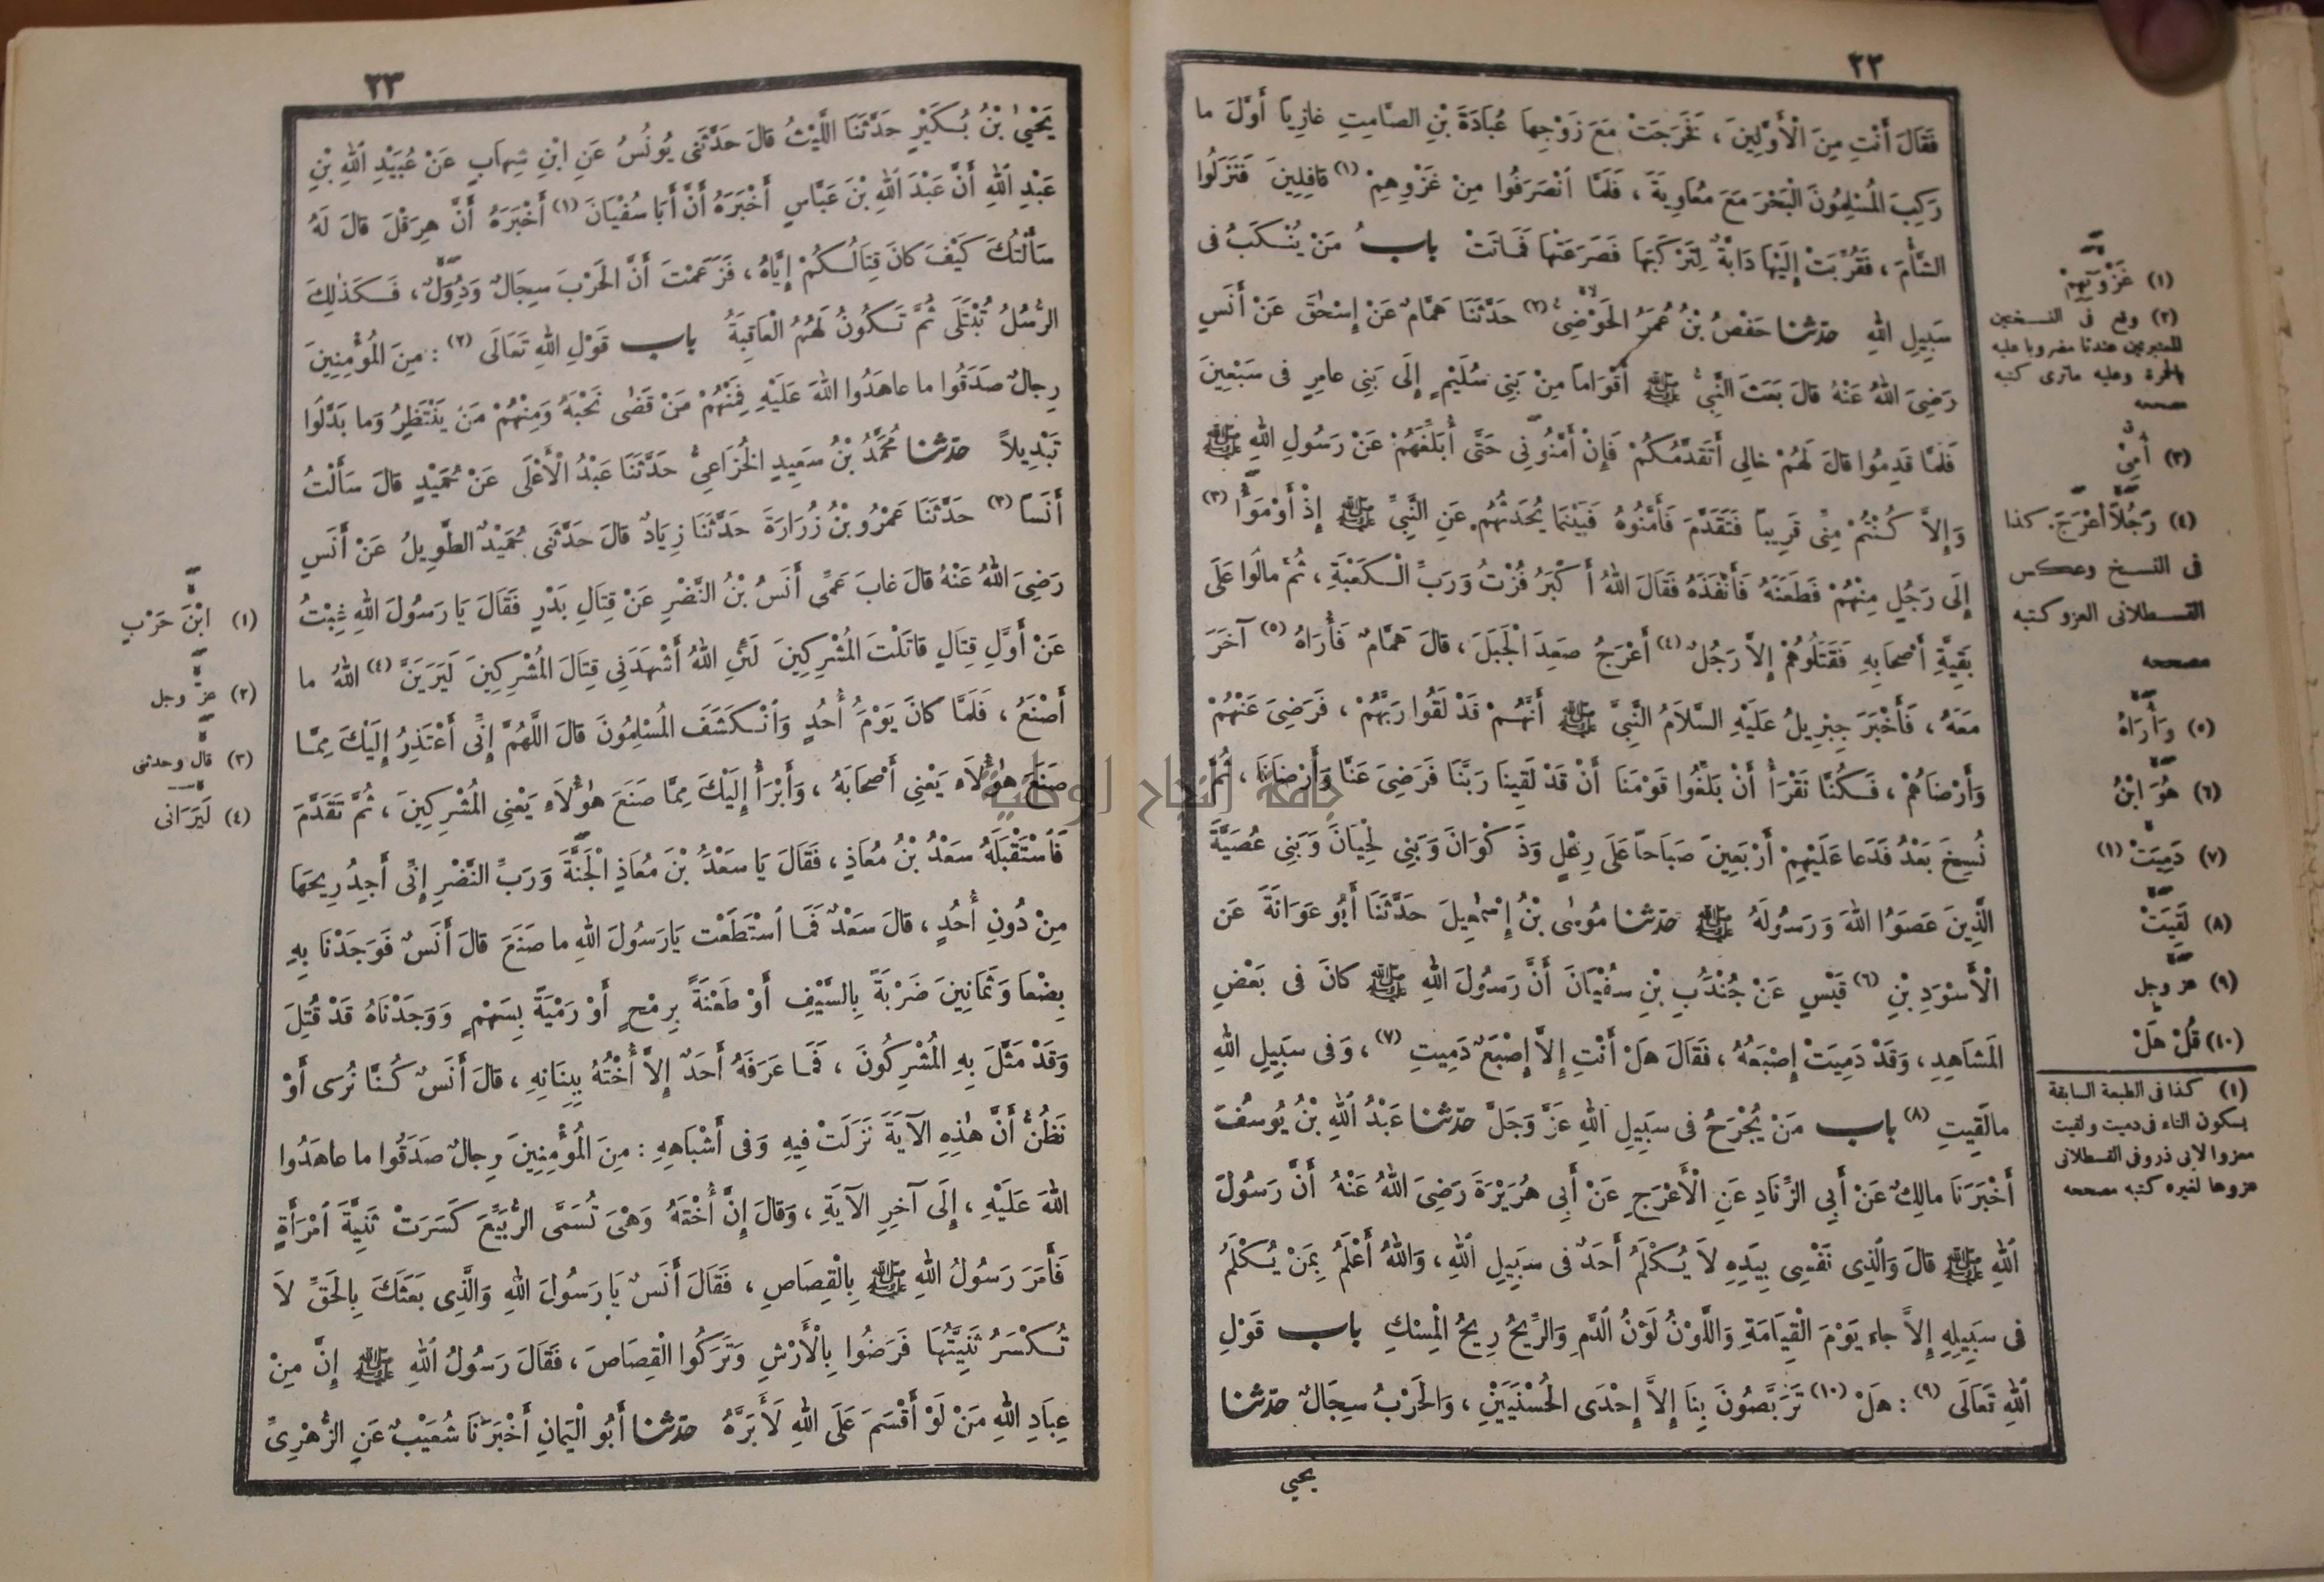 ٢٢
فَقَالَ أَنْتِ مِنَ الْأَوَّلِينَ ، فَخَرَجَتْ مَعَ زَوْجِهَا عُبَادَةَ بْنِ الصَّامِتِ غازِيًا أَوَّلَ ما
رَكِبَ الْمُسْلِمُونَ الْبَحْرَ مَعَ مُعَاوِيَةَ ، فَلَمَّا انْصَرَفُوا مِنْ غَزْوِهِمْ (١) قافِلِينَ فَنَزَلُوا
الشَّأْمَ ، فَقُرِّبَتْ إِلَيْهَا دَابَّةٌ لِتَرْكَبَهَا فَصَرَعَتْهَا فَمَاتَتْ باب مَنْ يُنْكَبُ فى
سَبِيلِ اللهِ حدثنا حَفْصُ بْنُ عُمَرَ الْحَوْضِىُّ (٢) حَدَّثَنَا هَمَّامٌ عَنْ إِسْحٰقَ عَنْ أَنَسٍ
رَضِىَ اللهُ عَنْهُ قَالَ بَعَثَ النَّبِىُّ ﷺ أَقْوَامًا مِنْ بَنِي سُلَيْمٍ إِلَى بَنِي عامِرٍ فى سَبْعِينَ
فَلَمَّا قَدِمُوا قالَ لَهُمْ خالِي أَتَقَدَّمُكُمْ فَإِنْ أَمَّنُونِي حَتَّى أُبَلِّغَهُمْ عَنْ رَسُولِ اللهِ ﷺ
وَإِلاَّ كُنْتُمْ مِنِّي قَرِيبًا فَتَقَدَّمَ فَأَمَّنُوهُ فَبَيْنَمَا يُحَدِّثُهُمْ عَنِ النَّبِيِّ ﷺ إِذْ أَوْمَؤُا (٣)
إِلَى رَجُلٍ مِنْهُمْ فَطَعَنَهُ فَأَنْفَذَهُ فَقَالَ اللهُ أَكْبَرُ فُزْتُ وَرَبِّ الْكَعْبَةِ ، ثُمَّ مالُوا عَلَى
بَقِيَّةِ أَصْحَابِهِ فَقَتَلُوهُمْ إِلاَّ رَجُلٌ (٤) أَعْرَجُ صَعِدَ الْجَبَلَ ، قالَ هَمَّامٌ فَأُرَاهُ (٥) آخَرَ
مَعَهُ ، فَأَخْبَرَ جِبْرِيلُ عَلَيْهِ السَّلاَمُ النَّبِيَّ ﷺ أَنَّهُمْ قَدْ لَقُوا رَبَّهُمْ ، فَرَضِىَ عَنْهُمْ
وَأَرْضَاهُمْ ، فَكُنَّا نَقْرَأُ أَنْ بَلِّغُوا قَوْمَنَا أَنْ قَدْ لَقِينَا رَبَّنَا فَرَضِىَ عَنَّا وَأَرْضَانَا ، ثُمَّ
نُسِخَ بَعْدُ فَدَعا عَلَيْهِمْ أَرْبَعِينَ صَبَاحًا عَلَى رِعْلٍ وَذَكْوَانَ وَبَنِي لِحْيَانَ وَبَنِي عُصَيَّةَ
الَّذِينَ عَصَوُا اللهَ وَرَسُولَهُ ﷺ حدثنا مُوسٰى بْنُ إِسْمٰعِيلَ حَدَّثَنَا أَبُو عَوَانَةَ عَنِ
الْأَسْوَدِ بْنِ (٦) قَيْسٍ عَنْ جُنْدُبِ بْنِ سُفْيَانَ أَنَّ رَسُولَ اللهِ ﷺ كانَ فى بَعْضِ
الْمَشَاهِدِ ، وَقَدْ دَمِيَتْ إِصْبَعُهُ ، فَقَالَ هَلْ أَنْتِ إِلاَّ إِصْبَعٌ دَمِيتِ (٧) ، وَفى سَبِيلِ اللهِ
مالَقِيتِ (٨) باب مَنْ يُجْرَحُ فى سَبِيلِ اللهِ عَزَّ وَجَلَّ حدثنا عَبْدُ اللهِ بْنُ يُوسُفَ
أَخْبَرَنَا مالِكٌ عَنْ أَبِي الزِّنَادِ عَنِ الْأَعْرَجِ عَنْ أَبِي هُرَيْرَةَ رَضِيَ اللهُ عَنْهُ أَنَّ رَسُولَ
اللهِ ﷺ قالَ وَالَّذِى نَفْسِى بِيَدِهِ لاَ يُكْلَمُ أَحَدٌ فى سَبِيلِ اللهِ ، وَاللهُ أَعْلَمُ بِمَنْ يُكْلَمُ
فى سَبِيلِهِ إِلاَّ جاء يَوْمَ الْقِيَامَةِ وَاللَّوْنُ لَوْنُ الدَّمِ وَالرِّيحُ رِيحُ الْمِسْكِ باب قَوْلِ
اللهِ تَعَالَى (٩) : هَلْ (١٠) تَرَبَّصُونَ بِنَا إِلاَّ إِحْدَى الْحُسْنَيَيْنِ ، وَالْحَرْبُ سِجَالٌ حدثنا
يحيى
(١) غَزْوَتِهِمْ
(٢) وقع فى النسختين
المعتبرتين عندنا مضروبا عليه
بالحمرة وعليه ماترى كتبه
مصححه
(٣) أُمِىْ
(٤) رَجُلاً أَعْرَجَ. كذا
فى النسخ وعكس
القسطلانى العزو كتبه
مصححه
(٥) وَأُرَاهُ
(٦) هُوَ ابْنُ
(٧) دَمِيَتْ (١)
(٨) لَقِيَتْ
(٩) عز وجل
(١٠) قُلْ هَلْ
(١) كذا فى الطبعة السابقة
بسكون التاء فى دميت ولقيت
معزوا لابى ذر وفى القسطلانى
عزوها لغيره كتبه مصححه
٢٣
يَحْيٰى بْنُ بُكَيْرٍ حَدَّثَنَا اللَّيْثُ قالَ حَدَّثَنِى يُونُسُ عَنِ ابْنِ شِهَابٍ عَنْ عُبَيْدِ اللهِ بْنِ
عَبْدِ اللهِ أَنَّ عَبْدَ اللهِ بْنَ عَبَّاسٍ أَخْبَرَهُ أَنَّ أَبَا سُفْيَانَ (١) أَخْبَرَهُ أَنَّ هِرَقْلَ قالَ لَهُ
سَأَلْتُكَ كَيْفَ كانَ قِتَالُكُمْ إِيَّاهُ ، فَزَعَمْتَ أَنَّ الْحَرْبَ سِجَالٌ وَدُوَلٌ ، فَكَذٰلِكَ
الرُّسُلُ تُبْتَلَى ثُمَّ تَكُونُ لَهُمُ الْعَاقِبَةُ باب قَوْلِ اللهِ تَعَالَى (٢) : مِنَ الْمُؤْمِنِينَ
رِجالٌ صَدَقُوا ما عاهَدُوا اللهَ عَلَيْهِ فَمِنْهُمْ مَنْ قَضٰى نَحْبَهُ وَمِنْهُمْ مَنْ يَنْتَظِرُ وَما بَدَّلُوا
تَبْدِيلاً حدثنا مُحَمَّدُ بْنُ سَعِيدٍ الْخُزَاعِىُّ حَدَّثَنَا عَبْدُ الْأَعْلَى عَنْ حُمَيْدٍ قالَ سَأَلْتُ
أَنَسًا (٣) حَدَّثَنَا عَمْرُو بْنُ زُرَارَةَ حَدَّثَنَا زِيَادٌ قالَ حَدَّثَنِى حُمَيْدٌ الطَّوِيلُ عَنْ أَنَسٍ
رَضِىَ اللهُ عَنْهُ قالَ غابَ عَمِّى أَنَسُ بْنُ النَّضْرِ عَنْ قِتَالِ بَدْرٍ فَقَالَ يَا رَسُولَ اللهِ غِبْتُ
عَنْ أَوَّلِ قِتَالٍ قاتَلْتَ الْمُشْرِكِينَ لَئِنِ اللهُ أَشْهَدَنِي قِتَالَ الْمُشْرِكِينَ لَيَرَيَنَّ (٤) اللهُ ما
أَصْنَعُ ، فَلَمَّا كانَ يَوْمَ أُحُدٍ وَانْكَشَفَ الْمُسْلِمُونَ قالَ اللَّهُمَّ إِنِّى أَعْتَذِرُ إِلَيْكَ مِمَّا
صَنَعَ هٰؤُلاَء يَعْنِي أَصْحَابَهُ ، وَأَبْرَأُ إِلَيْكَ مِمَّا صَنَعَ هٰؤُلاَء يَعْنِي الْمُشْرِكِينَ ، ثُمَّ تَقَدَّمَ
فَاسْتَقْبَلَهُ سَعْدُ بْنُ مُعَاذٍ ، فَقَالَ يَا سَعْدُ بْنَ مُعَاذٍ الْجَنَّةَ وَرَبِّ النَّضْرِ إِنِّى أَجِدُ رِيحَهَا
مِنْ دُونِ أُحُدٍ ، قالَ سَعْدٌ فَمَا اسْتَطَعْتُ يَارَسُولَ اللهِ ما صَنَعَ قالَ أَنَسٌ فَوَجَدْنَا بِهِ
بِضْعًا وَثَمَانِينَ ضَرْبَةً بِالسَّيْفِ أَوْ طَعْنَةً بِرِمْحٍ أَوْ رَمْيَةً بِسَهْمٍ وَوَجَدْنَاهُ قَدْ قُتِلَ
وَقَدْ مَثَّلَ بِهِ الْمُشْرِكُونَ ، فَمَا عَرَفَهُ أَحَدٌ إِلاَّ أُخْتُهُ بِبَنَانِهِ ، قالَ أَنَسٌ كُنَّا نُرَى أَوْ
نَظُنُّ أَنَّ هٰذِهِ الآيَةَ نَزَلَتْ فِيهِ وَفى أَشْبَاهِهِ : مِنَ الْمُؤْمِنِينَ رِجالٌ صَدَقُوا ما عاهَدُوا
اللهَ عَلَيْهِ ، إِلَى آخِرِ الآيَةِ ، وَقالَ إِنَّ أُخْتَهُ وَهْىَ تُسَمَّى الرُّبَيِّعَ كَسَرَتْ ثَنِيَّةَ امْرَأَةٍ
فَأَمَرَ رَسُولُ اللهِ ﷺ بِالْقِصَاصِ ، فَقَالَ أَنَسٌ يَا رَسُولَ اللهِ وَالَّذِى بَعَثَكَ بِالْحَقِّ لاَ
تُكْسَرُ ثَنِيَّتُهَا فَرَضُوا بِالْأَرْشِ وَتَرَكُوا الْقِصَاصَ ، فَقَالَ رَسُولُ اللهِ ﷺ إِنَّ مِنْ
عِبَادِ اللهِ مَنْ لَوْ أَقْسَمَ عَلَى اللهِ لَأَبَرَّهُ حدثنا أَبُو الْيَمَانِ أَخْبَرَنَا شُعَيْبٌ عَنِ الزُّهْرِىِّ
(١) ابْنَ حَرْبٍ
(٢) عز وجل
(٣) قال وحدثنى
(٤) لَيَرَانِى
جامعة النجاح الوطنية